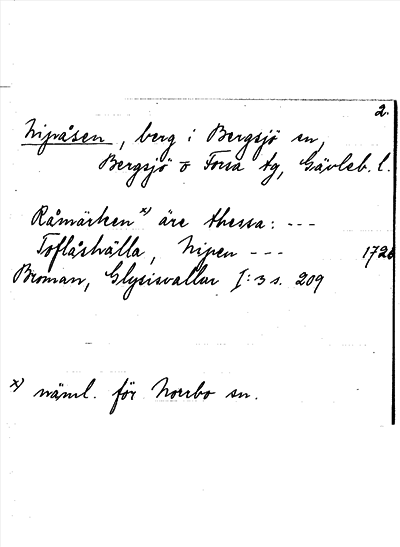 2.
Nipåsen, berg i Bergsjö sn,
Bergsjö o Forsa tg, Gävleb. l.
Råmärken x) äre thessa: ---
Toflåshälla, Nipen --- 1726
Broman, Glysisvallur I:3 s. 209
x) näml. för Norrbo sn.